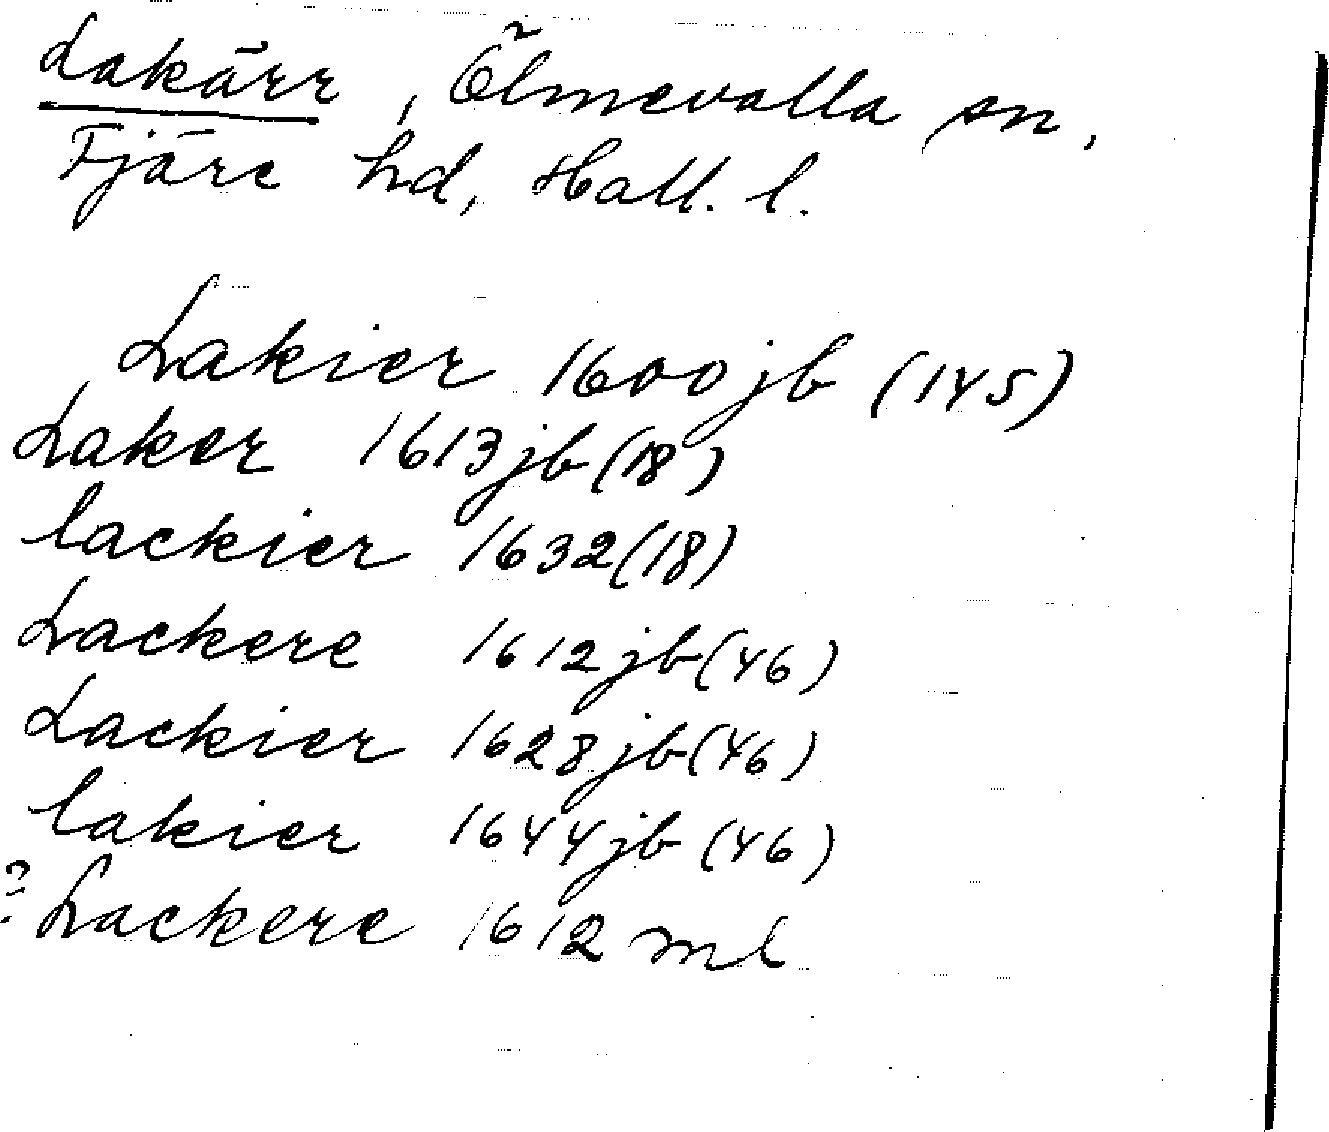 Lakärr, Ölmevalla sn,
Fjäre hd, Hall. l.
Lakier 1600 jb (145)
Laker 1613 jb (18)
lackier 1632 (18)
Lackere 1612 jb (46)
Lackier 1628 jb (46)
lakier 1644 jb (46)
Lackere 1612 ml